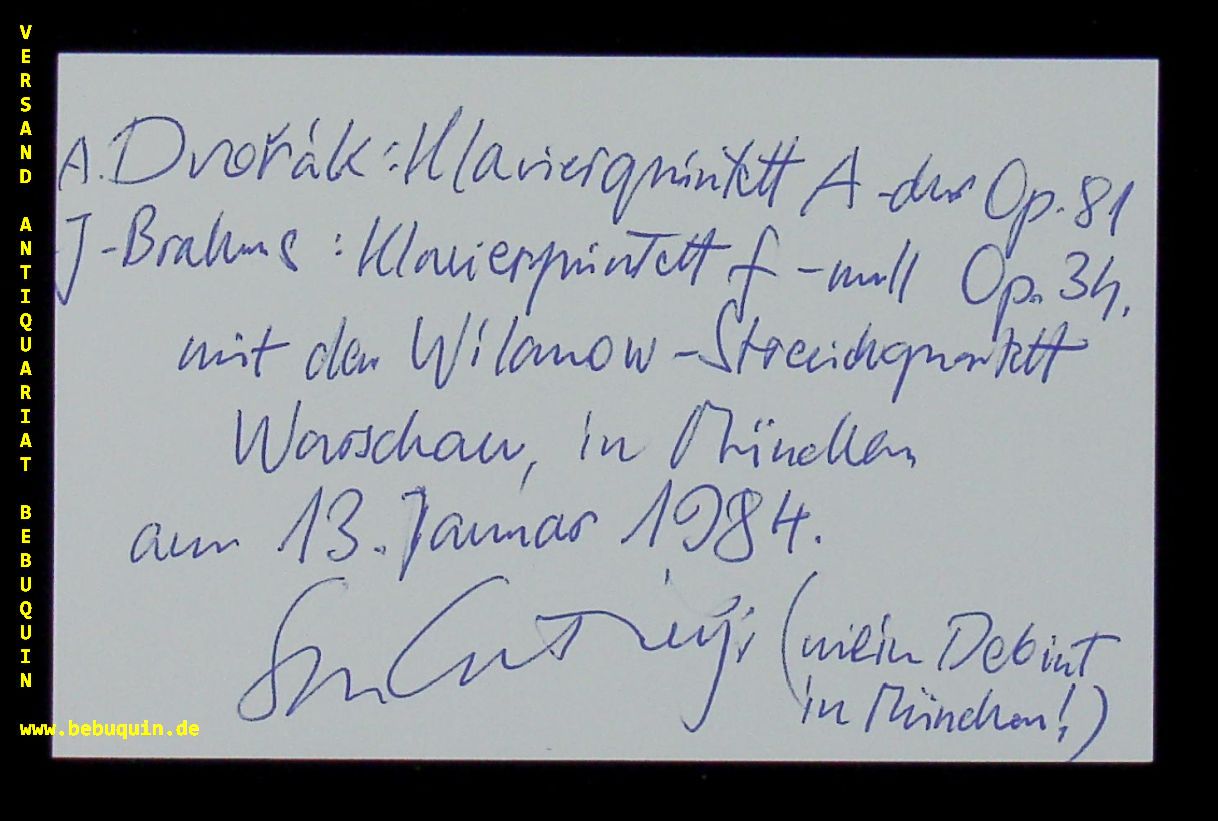 VERSAND ANTIQUARIAT BEBUQUIN
www.bebuquin.de
A. Dvořák: Klavierquintett A-dur Op. 81
J-Brahms: Klavierquintett f-moll Op. 34.
mit dem Wilanow-Streichquartett
Warschau, in München
am 13. Januar 1984.
(mein Debiut
in München!)